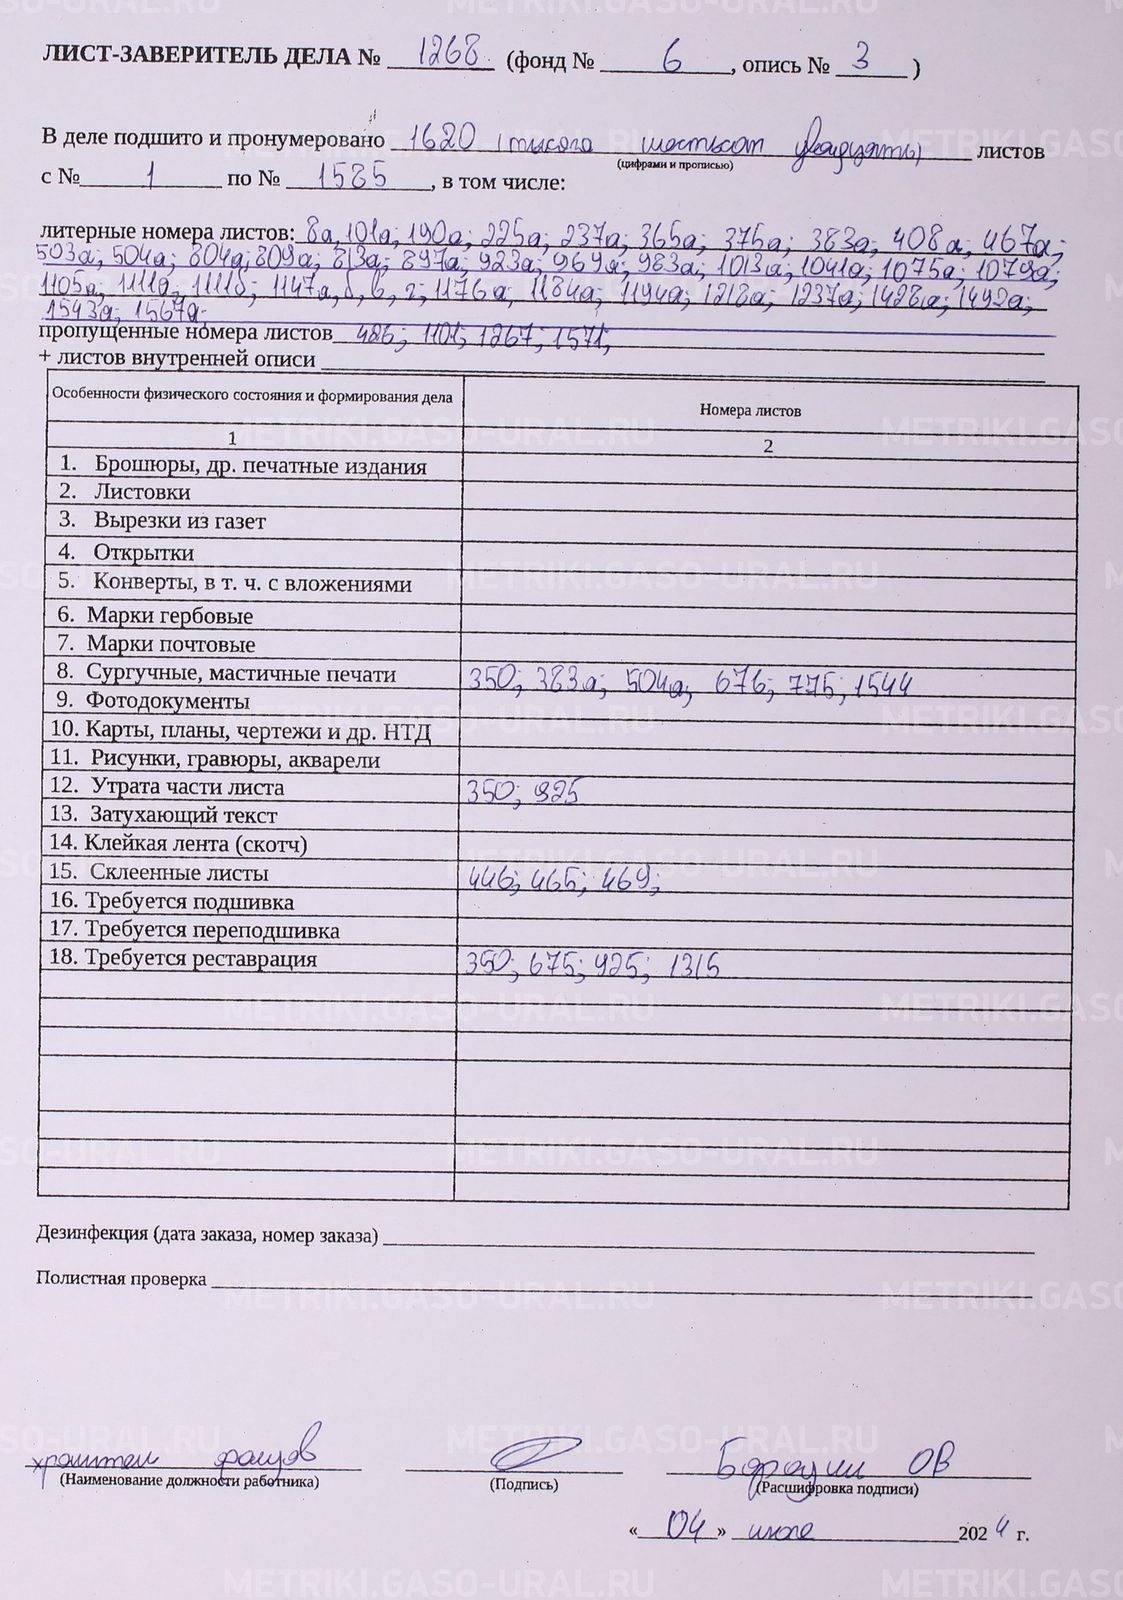 ЛИСТ-ЗАВЕРИТЕЛЬ ДЕЛА № 1268 (фонд № 6, опись № 3)
В деле подшито и пронумеровано 1620 (тысяча шестьсот двадцать) листов
(цифрами и прописью)
с № 1 по № 1585, в том числе:
литерные номера листов: 8а, 101а; 190а; 225а; 237а; 365а; 375а; 383а; 408а; 467а;
503а; 504а; 804а; 809а; 813а; 897а; 923а; 969а; 983а; 1013а; 1041а; 1075а; 1079а;
1105а; 1111а; 1111б; 1147а, б, в, г; 1176а; 1184а; 1194а; 1218а; 1237а; 1428а; 1492а;
1543а; 1567а.
пропущенные номера листов 486; 1101; 1267; 1571;
+ листов внутренней описи
Особенности физического состояния и формирования дела Номера листов
1 2
1. Брошюры, др. печатные издания
2. Листовки
3. Вырезки из газет
4. Открытки
5. Конверты, в т. ч. с вложениями
6. Марки гербовые
7. Марки почтовые
8. Сургучные, мастичные печати 350; 383а; 504а; 676; 775; 1544
9. Фотодокументы
10. Карты, планы, чертежи и др. НТД
11. Рисунки, гравюры, акварели
12. Утрата части листа 350; 925
13. Затухающий текст
14. Клейкая лента (скотч)
15. Склеенные листы 446; 465; 469;
16. Требуется подшивка
17. Требуется переподшивка
18. Требуется реставрация 350; 675; 925; 1315
Дезинфекция (дата заказа, номер заказа)
Полистная проверка
хранител фондов ОВ
(Наименование должности работника) (Подпись) (Расшифровка подписи)
«04» июля 2024 г.
METRIKI.GASO-URAL.RU